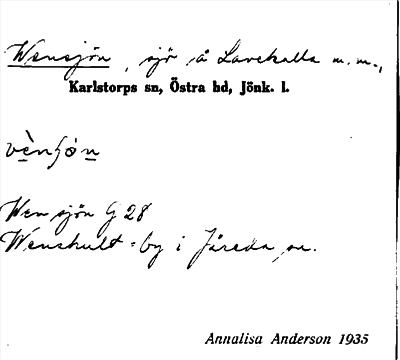 Wensjön, sjö å Lavekulla m.m.,
Karlstorps sn, Östra hd, Jönk. l.
vènʃòn
Wensjön G 28
Wenskult = by i Järeda sn.
Annalisa Anderson 1935